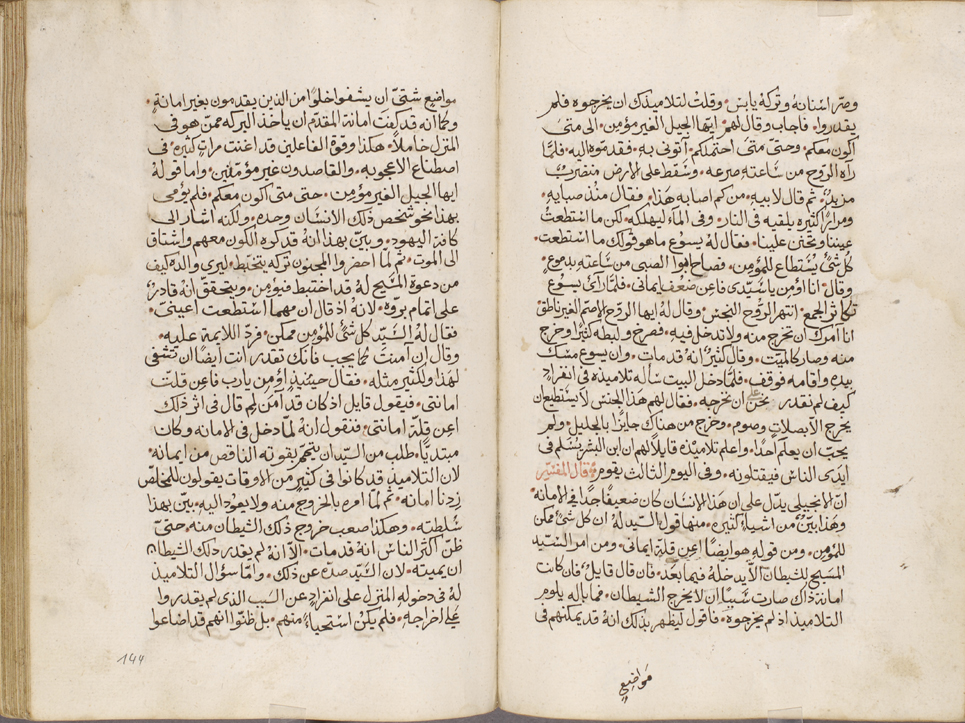 وصرّ اسنانه وتركه يابس • وقلت لتلاميذك ان يخرجوه فلم
يقدروا • فاجاب وقال لهم ايها الجيل الغير مؤمن • الى متى
اكون معكم • وحتى متى احتملكم • آتوني به • فقدموه اليه • فلما
راه الروح من ساعته صرعه • وسقط على الارض مضطرب
مزبد • ثم قال لابيه • من كم اصابه هذا • فقال منذ صبايه •
ومرارا كثيره يلقيه في النار • وفي الماء ليهلكه • لكن ما استطعت
عيننا وتحنن علينا • فقال له يسوع ما هو قولك ما استطعت •
كل شئ يستطاع للمؤمن • فصاح ابوا الصبي من ساعته بدموع •
وقال • انا اؤمن يا سيدي فاعن ضعف ايماني • فلما رآى يسوع
تكاثر الجمع • انتهر الروح النجس • وقال له ايها الروح الاصم الغير ناطق
انا آمرك ان تخرج منه ولا تدخل فيه • فصرخ ولبطه كثيرا وخرج
منه وصار كالميت • وقال كثير انه قد مات • وان يسوع مسك
بيده واقامه فوقف • فلما دخل البيت سأله تلاميذه في انفراد
كيف لم نقدر نحن على ان نخرجه • فقال لهم هذا الجنس لا يستطيع ان
يخرج الا بصلاة وصوم • وخرج من هناك جايزا بالجليل • ولم
يحب ان يعلم احدا • واعلم تلاميذه قايلا لهم ان ابن البشر يسلم في
ايدى الناس فيقتلونه • وفي اليوم الثالث يقوم • قال المفسر
ان الانجيلي يدل على ان هذا الانسان كان ضعيفا جدا في الامانه •
وهذا بيّن من اشياء كثيره • منها قول السيد له ان كل شئ ممكن
للمؤمن • ومن قوله هو ايضا اعن قلة ايماني • ومن امر السيد
المسيح للشيطان الا يدخله فيما بعد • فان قال قايل • فان كانت
امانة ذاك صارت سببا ان لا يخرج الشيطان • فما باله يلوم
التلاميذ اذ لم يخرجوه • فاقول ليظهر بذلك انه قد يمكنهم في
مواضع
مواضع شتى ان يشفوا خلوا من الذين يقدمون بغير امانة •
وكما انه قد كفت امانة المقدم ان يأخذ البركه ممن هو في
المنزل خاملا • هكذا وقوة الفاعلين قد اغنت مرات كثيره • في
اصطناع الاعجوبه • والقاصدون غير مؤمنين • واما قوله
ايها الجيل الغير مؤمن • حتى متى اكون معكم • فلم يؤمي
بهذا نحو شخص ذلك الانسان وحده • ولكنه اشار الى
كافة اليهود • وبين بهذا انه قد كره الكون معهم واشتاق
الى الموت • ثم لما احضروا المجنون تركه يتخبط • ليرى والده كيف
من دعوة المسيح له قد اختبط فيؤمن • ويتحقق انه قادر
على اتمام بروه • لانه اذ قال ان مهما استطعت اعيني •
فقال له السيد كل شئ للمؤمن ممكن • فرد اللايمة عليه •
وقال ان امنت كما يجب فانك تقدر انت ايضا ان تشفى
لهذا ولكثير مثله • فقال حينئذ اؤمن يارب فاعن قلت
امانتي • فيقول قايل اذ كان قد آمن لم قال في اثر ذلك
اعن قلة امانتي • فنقول انه لما دخل في الامانه وكان
مبتديا • طلب من السيد ان يتمم بقوته الناقص من ايمانه •
لان التلاميذ قد كانوا في كثير من الاوقات يقولون للمخلص
زدنا امانه • ثم لما امره بالخروج منه ولا يعود اليه • بين بهذا
سلطته • وهكذا صعب خروج ذلك الشيطان منه • حتى
ظن اكثر الناس انه قد مات • الا انه لم يقدر ذلك الشيطان
ان يميته • لان السيد صده عن ذلك • واما سؤال التلاميذ
له في دخوله للمنزل على انفراد عن السبب الذي لم يقدروا
على اخراجه • فلم يكن استحياءً منهم • بل ظنوا انهم قد اضاعوا
144